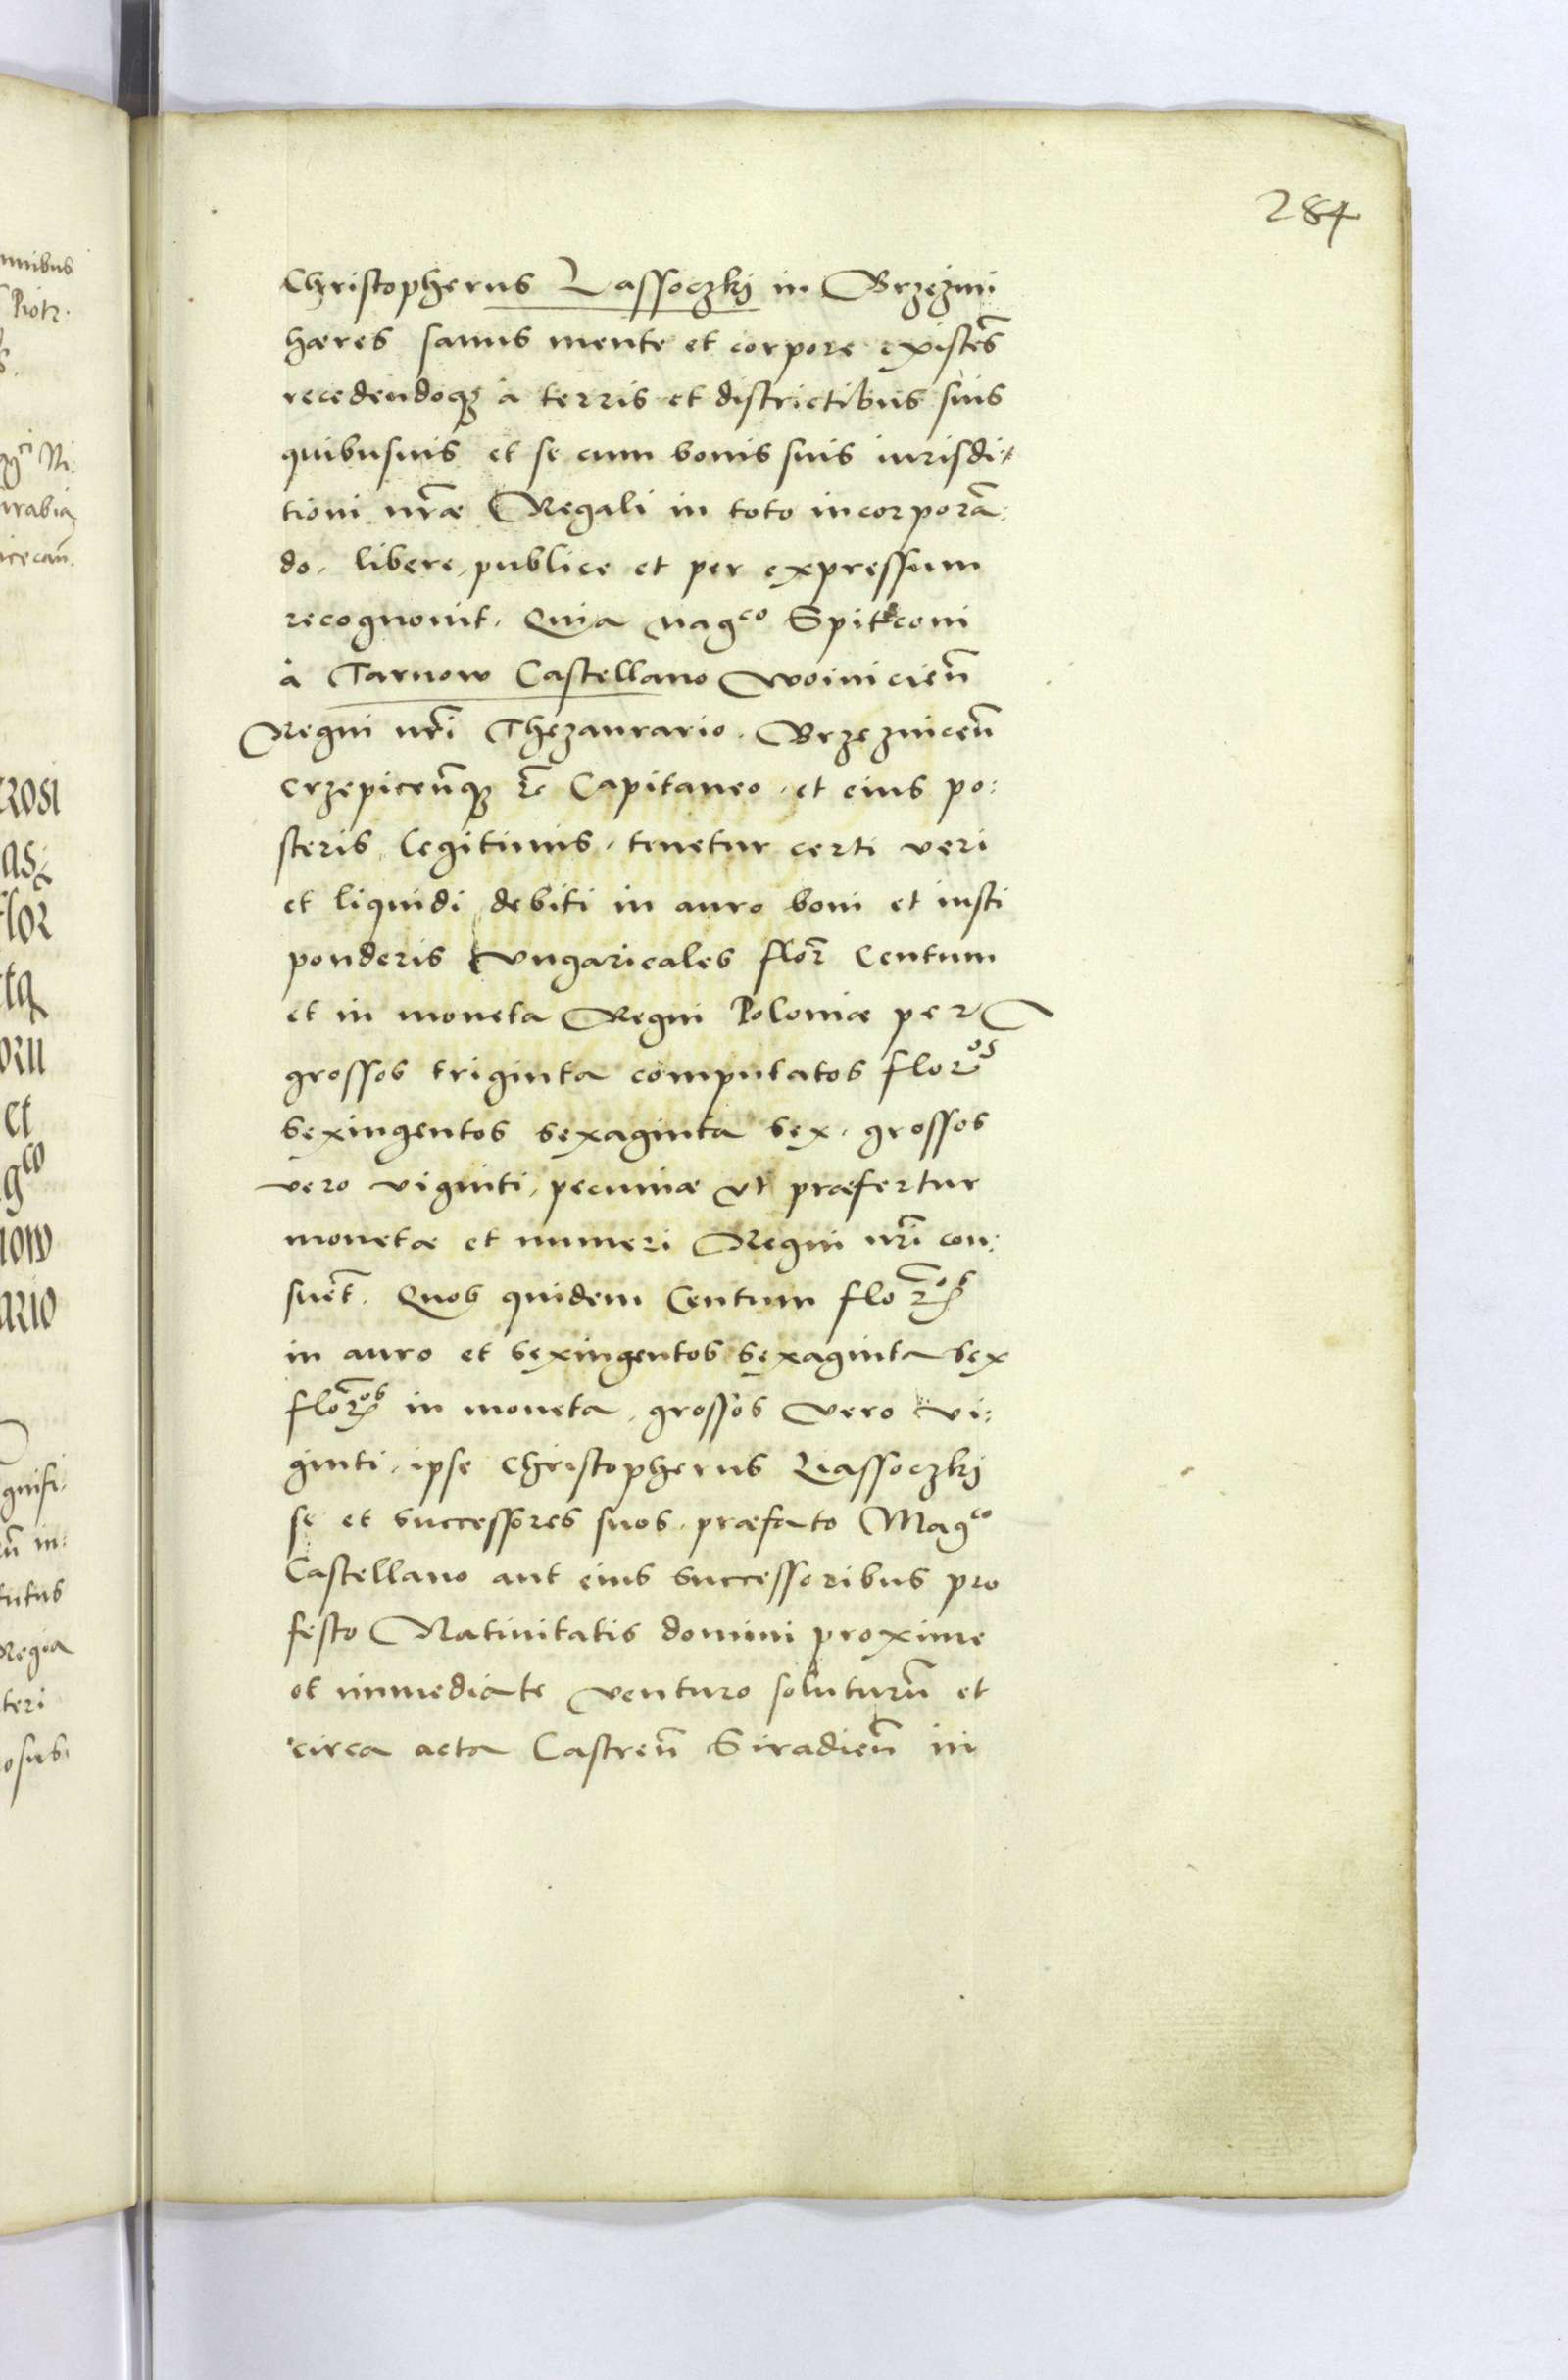 284
Christopherus Lassoczkj in Brzezini
hæres sanus mente et corpore existēs
recedendoqʒ à terris et districtibus suis
quibusuis et se cum bonis suis iurisdi:
tioni nr̄æ Regali in toto incorporā:
do. libere, publice et per expressum
recognouit. Quia mag^co Spitkconi
à Tarnow Castellano Woiniciēn
Regni nr̄i Thezaurario. Brzeznicēn
crzepicēnqʒ &c Capitaneo. et eius po:
steris legitimis. tenetur certi veri
et liquidi debiti in auro boni et iusti
ponderis Vngaricales flor̄ Centum
et in moneta Regni Poloniæ per
grossos triginta computatos flor^os
sexingentos sexaginta sex. grossos
vero viginti, pecuniæ vt præfertur
monetæ et numeri Regni nr̄i con:
suet̄. Quos quidem Centum flor̄^os
in auro et sexingentos sexaginta sex
flor̄^os in moneta, grossos vero vi:
ginti, ipse Christopherus Liassoczkj
se et successores suos. præfato Mag^co
Castellano aut eius successoribus pro
festo Natiuitatis domini proxime
et immediate venturo soluturū et
circa acta Castren̄ Siradien̄ in
nnibus
Piotr.
urabia
icecan̄.
ROSI
AS
FLOR
ET
NOW
ARIO
gnifi:
Regia
teri